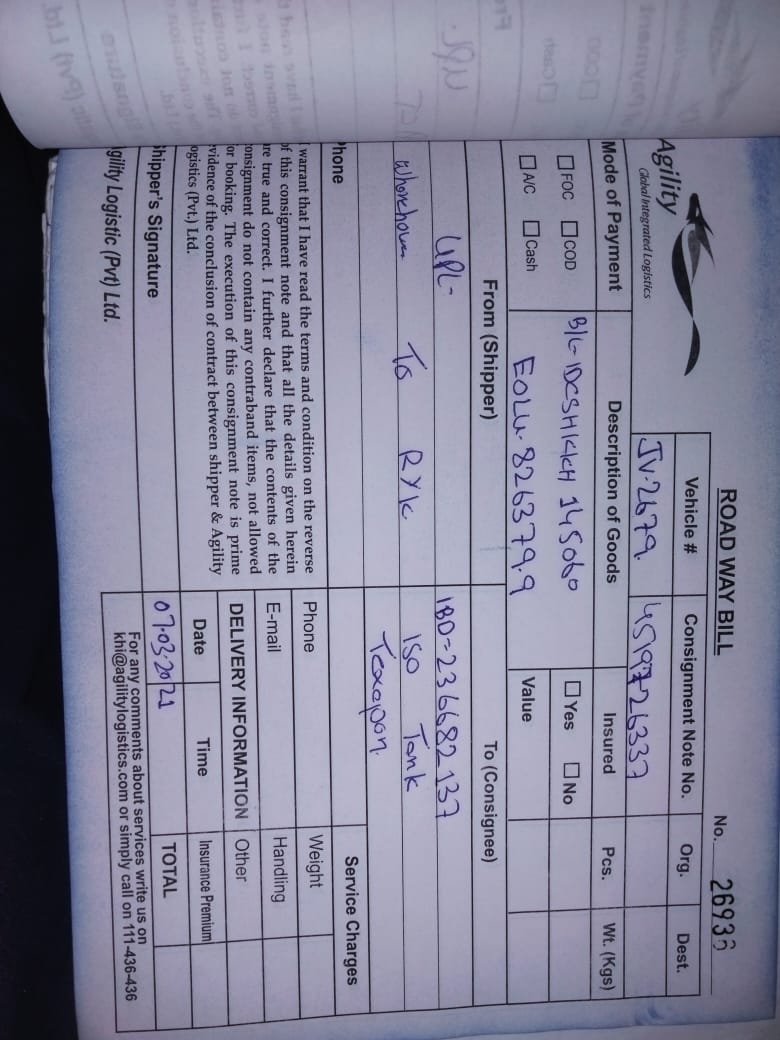 ROAD WAY BILL
No. 26936
Agility
Global Integrated Logistics
Vehicle # Consignment Note No. Org. Dest.
JV-2679 4519726337
Mode of Payment Description of Goods Insured Pcs. Wt. (Kgs)
FOC COD B/L- IDCSHKKH 145060 Yes No
A/C Cash EOLU-826379.9 Value
From (Shipper) To (Consignee)
UPL- IBD=236682137
To RYK ISO Tank
Texapon.
Phone Service Charges
I warrant that I have read the terms and condition on the reverse
of this consignment note and that all the details given herein
are true and correct. I further declare that the contents of the
consignment do not contain any contraband items, not allowed
for booking. The execution of this consignment note is prime
evidence of the conclusion of contract between shipper & Agility
Logistics (Pvt.) Ltd.
Phone Weight
E-mail Handling
DELIVERY INFORMATION Other
Date Time Insurance Premium
07-03-2021 TOTAL
Shipper's Signature
Agility Logistic (Pvt) Ltd.
For any comments about services write us on
khi@agilitylogistics.com or simply call on 111-436-436